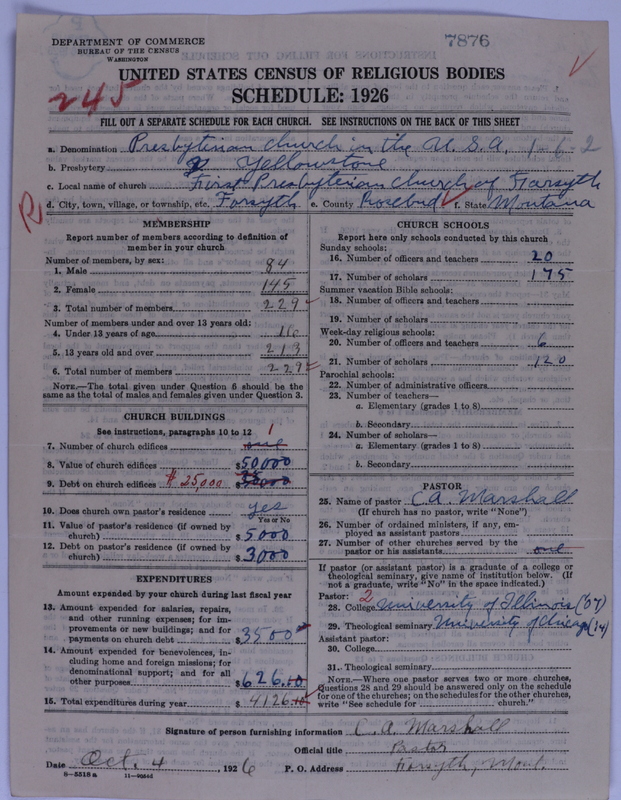 DEPARTMENT OF COMMERCE
BUREAU OF THE CENSUS
WASHINGTON
7876
UNITED STATES CENSUS OF RELIGIOUS BODIES
SCHEDULE: 1926
245
FILL OUT A SEPARATE SCHEDULE FOR EACH CHURCH. SEE INSTRUCTIONS ON THE BACK OF THIS SHEET
a. Denomination Presbyterian church in the U.S.A. 1-6-2
b. Presbytery Yellowstone
c. Local name of church First Presbyterian church of Forsyth
d. City, town, village, or township, etc. Forsyth e. County Rosebud f. State Montana
R
MEMBERSHIP
Report number of members according to definition of member in your church
Number of members, by sex:
1. Male 84
2. Female 145
3. Total number of members 229
Number of members under and over 13 years old:
4. Under 13 years of age 16
5. 13 years old and over 213
6. Total number of members 229
NOTE.—The total given under Question 6 should be the same as the total of males and females given under Question 3.
CHURCH BUILDINGS
See instructions, paragraphs 10 to 12
7. Number of church edifices one 1
8. Value of church edifices $50,000
9. Debt on church edifices $25,000 $
10. Does church own pastor's residence yes
Yes or No
11. Value of pastor's residence (if owned by church) $5000
12. Debt on pastor's residence (if owned by church) $3000
EXPENDITURES
Amount expended by your church during last fiscal year
13. Amount expended for salaries, repairs, and other running expenses; for improvements or new buildings; and for payments on church debt $3500
14. Amount expended for benevolences, including home and foreign missions; for denominational support; and for all other purposes $626.10
15. Total expenditures during year $4126.10
CHURCH SCHOOLS
Report here only schools conducted by this church
Sunday schools:
16. Number of officers and teachers 20
17. Number of scholars 175
Summer vacation Bible schools:
18. Number of officers and teachers
19. Number of scholars
Week-day religious schools:
20. Number of officers and teachers 6
21. Number of scholars 120
Parochial schools:
22. Number of administrative officers
23. Number of teachers—
a. Elementary (grades 1 to 8)
b. Secondary
24. Number of scholars—
a. Elementary (grades 1 to 8)
b. Secondary
PASTOR
25. Name of pastor C. A. Marshall
(If church has no pastor, write "None")
26. Number of ordained ministers, if any, employed as assistant pastors
27. Number of other churches served by the pastor or his assistants one
If pastor (or assistant pastor) is a graduate of a college or theological seminary, give name of institution below. (If not a graduate, write "No" in the space indicated.)
Pastor: 2
28. College University of Illinois (07)
29. Theological seminary University of Chicago (14)
Assistant pastor:
30. College
31. Theological seminary
NOTE.—Where one pastor serves two or more churches, Questions 28 and 29 should be answered only on the schedule for one of the churches; on the schedules for the other churches, write "See schedule for church."
Signature of person furnishing information C. A. Marshall
Official title Pastor
Date Oct. 4, 1926 P. O. Address Forsyth, Mont.
8—5518 a